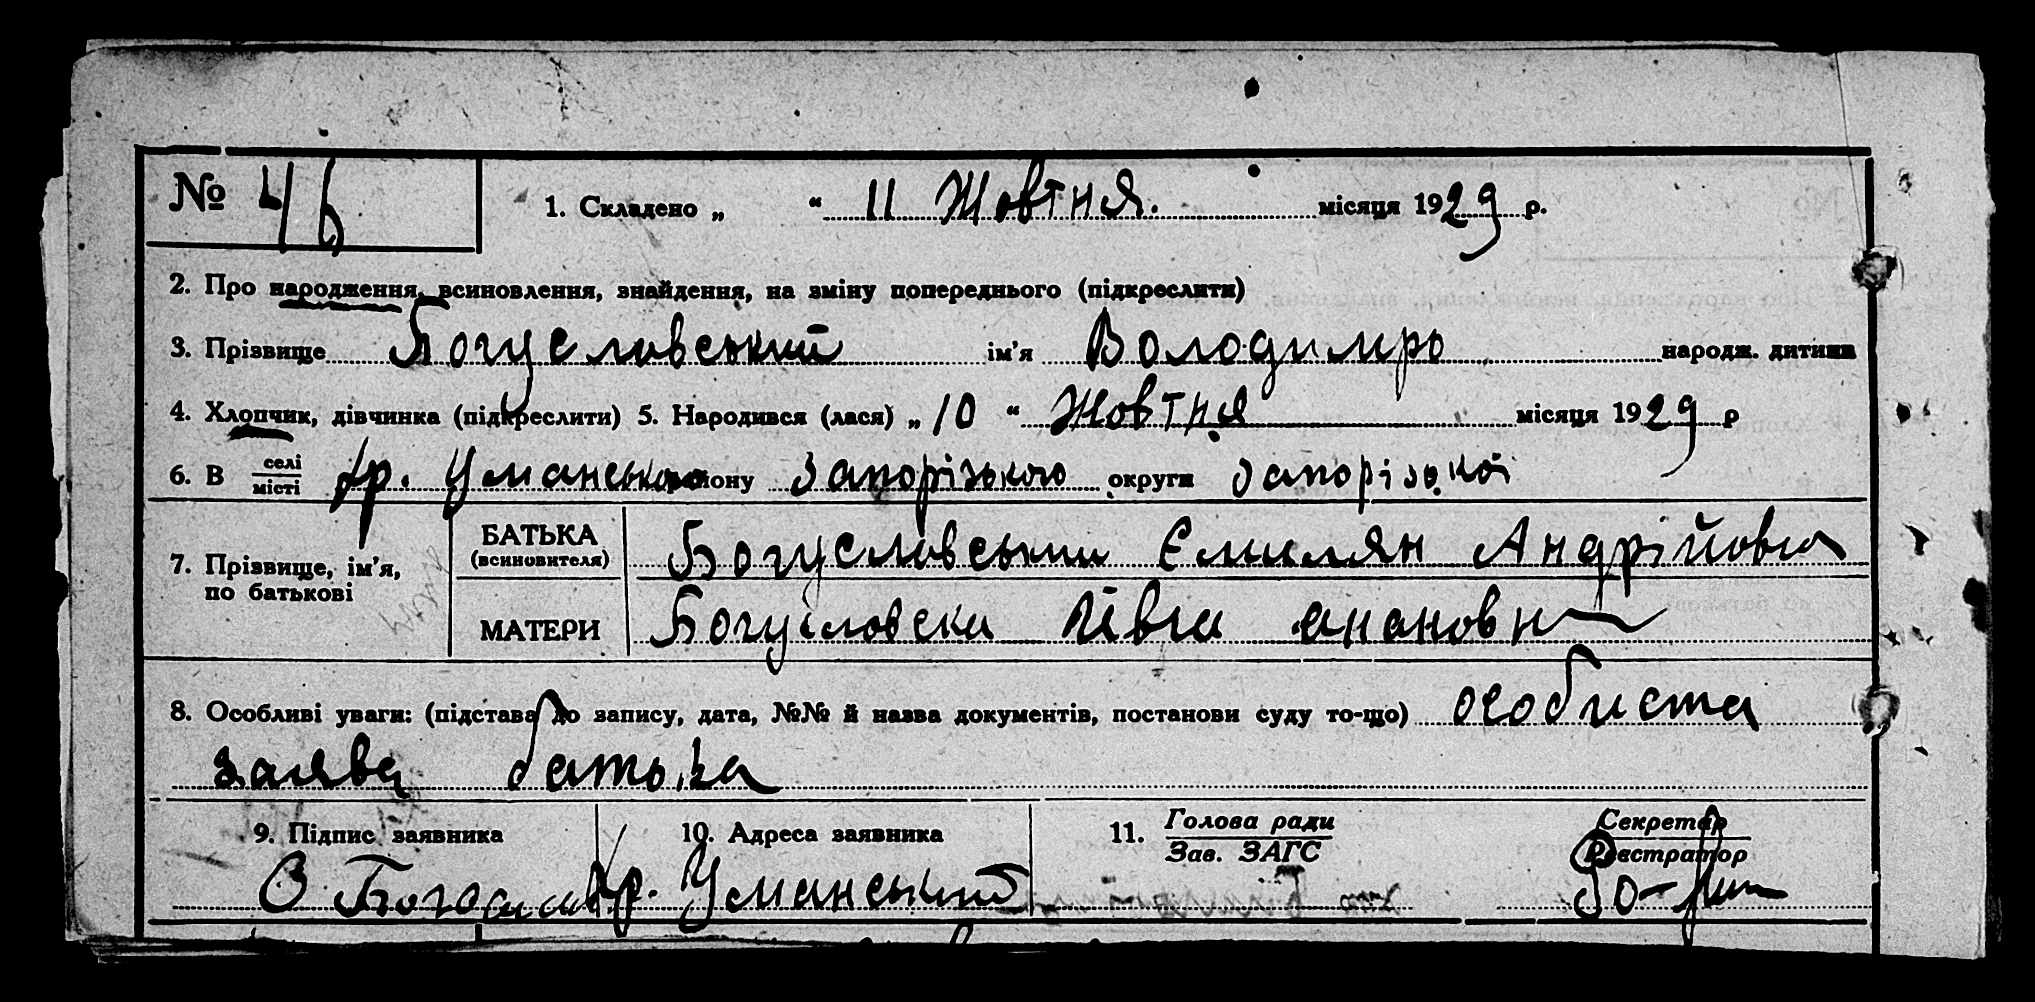 № 46
1. Складено „ “ 11 Жовтня. місяця 1929 р.
2. Про народження, всиновлення, знайдення, на зміну попереднього (підкреслити)
3. Прізвище Богуславський ім’я Володимир народж. дитини
4. Хлопчик, дівчинка (підкреслити) 5. Народився (лася) „10“ Жовтня місяця 1929 р
6. В селі місті хр. Уманського району Запорізького округи Запорізької
7. Прізвище, ім’я, по батькові
БАТЬКА (всиновителя) Богуславський Ємилян Андрійович
МАТЕРИ Богуславска
8. Особливі уваги: (підстава до запису, дата, №№ й назва документів, постанови суду то-що) особиста
заява батька
9. Підпис заявника 10. Адреса заявника 11. Голова ради Секретар
Зав. ЗАГС Реєстратор
хр. Уманський